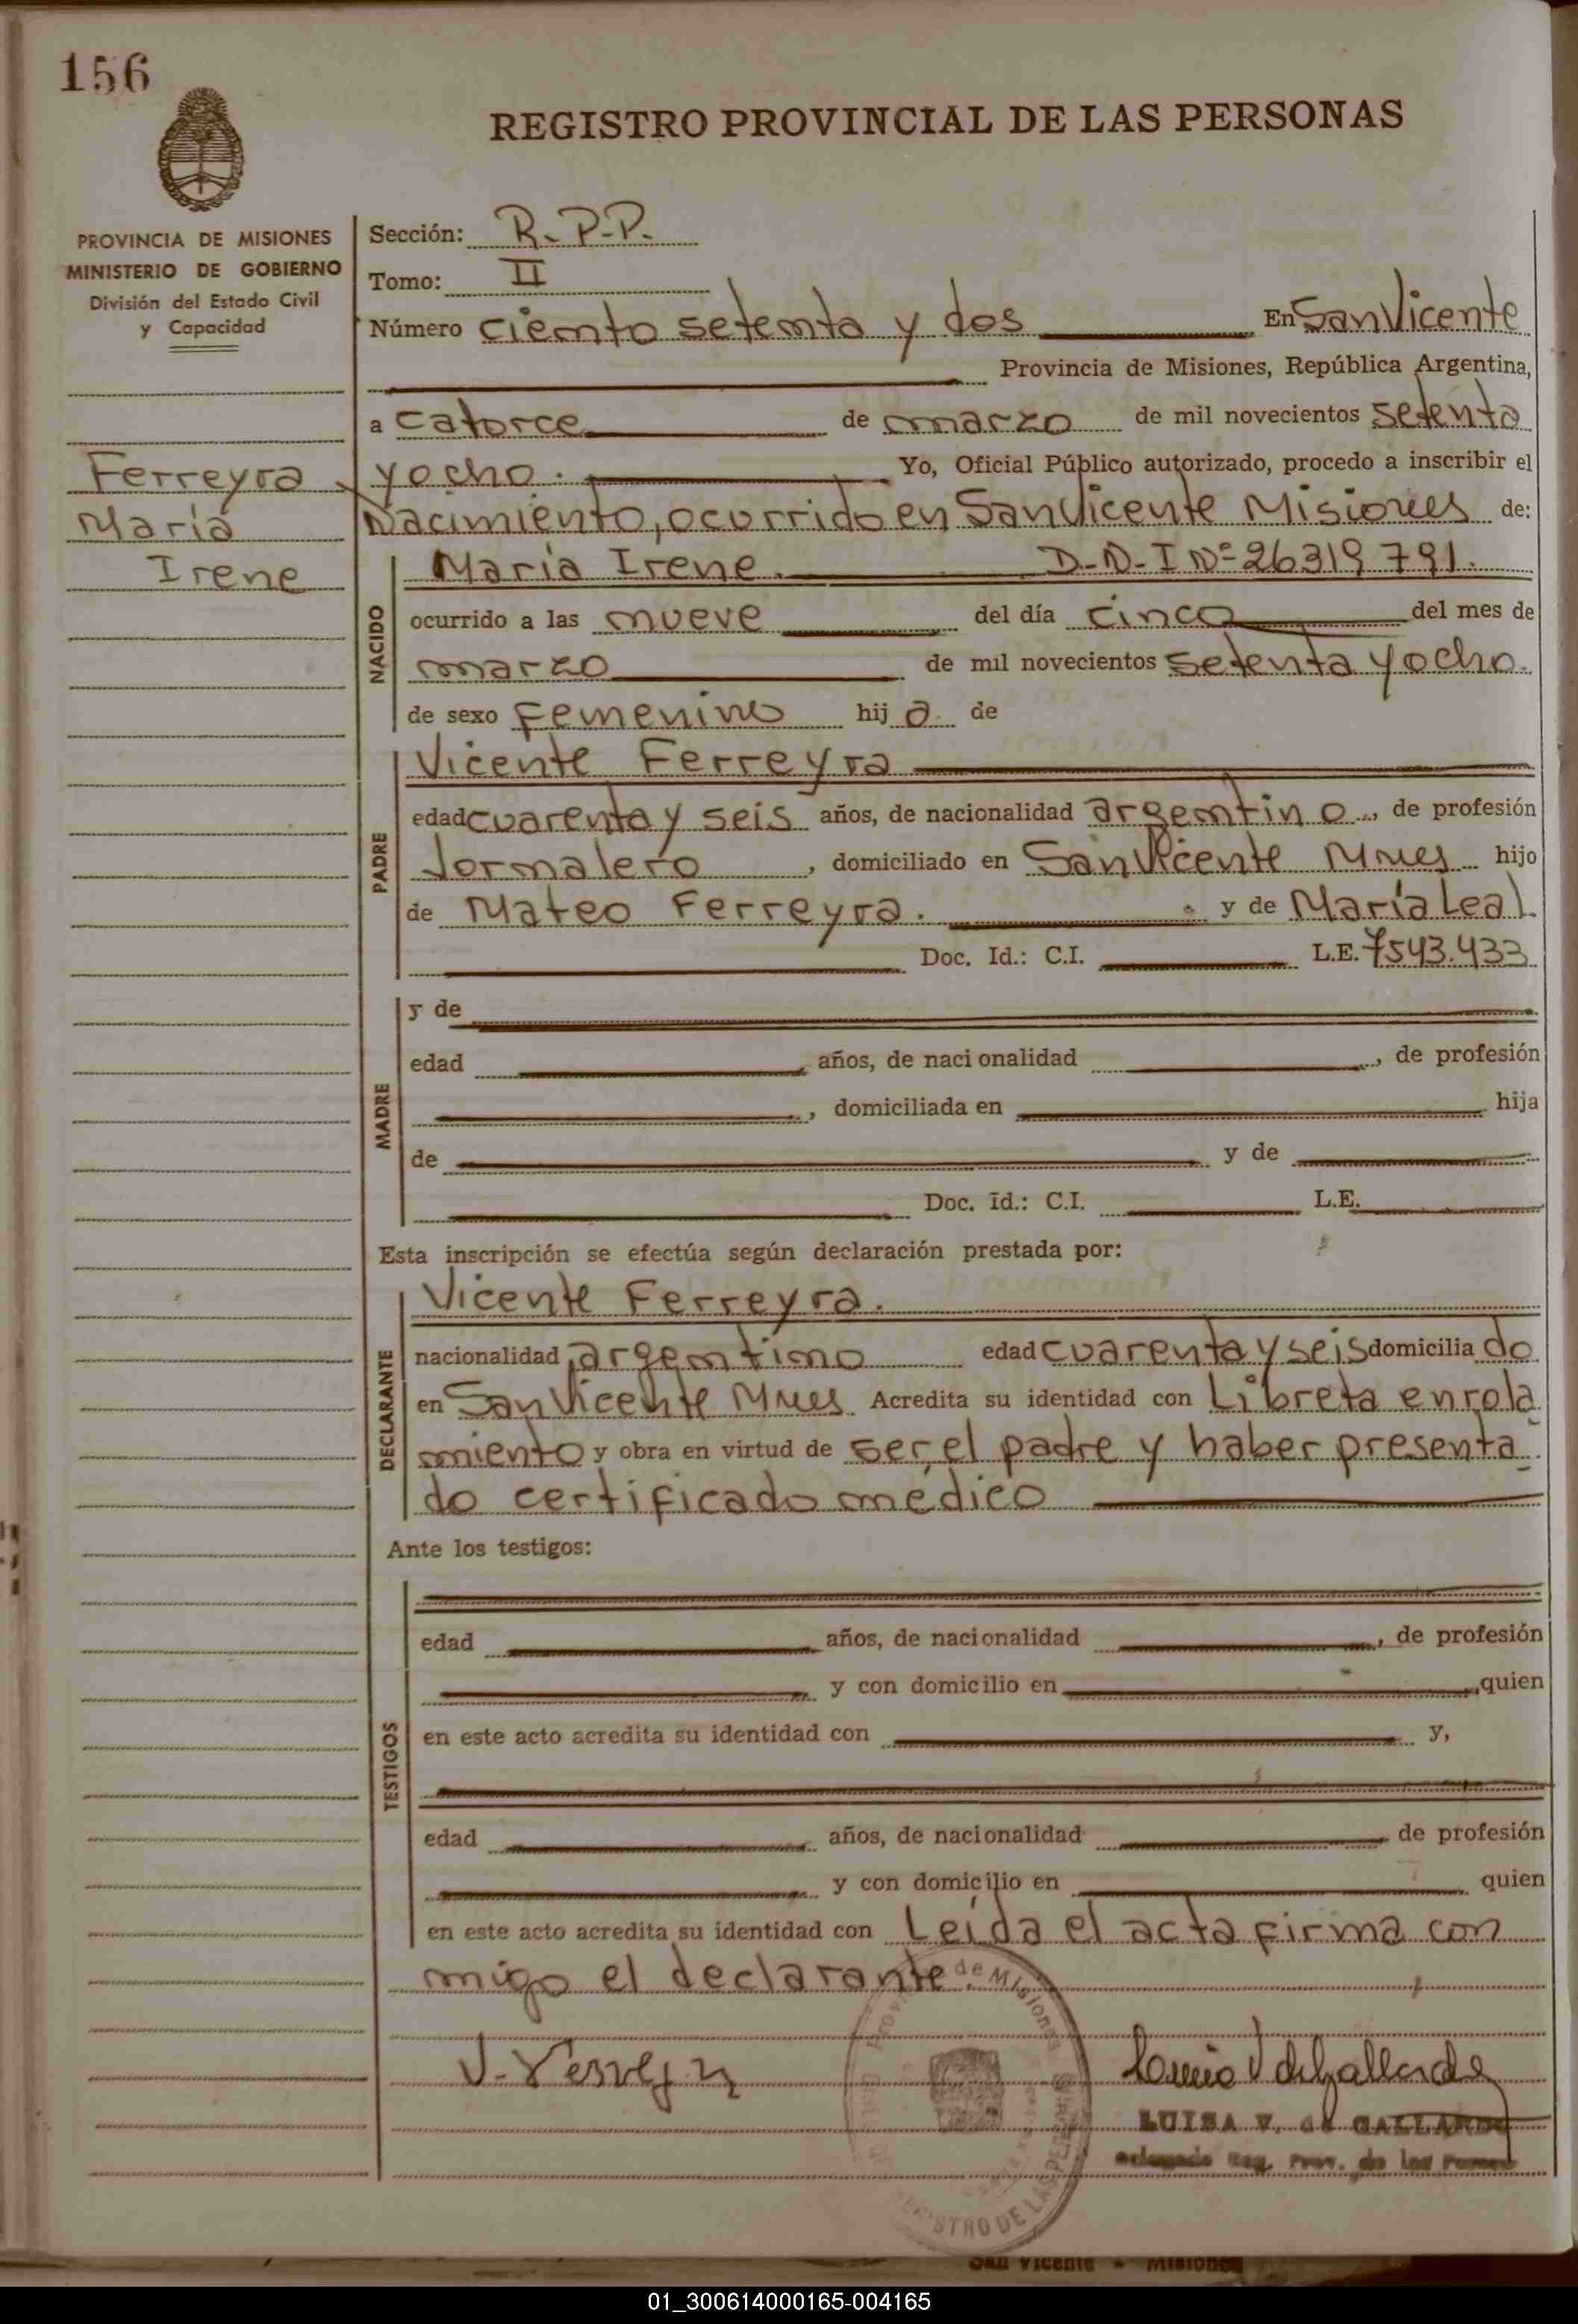 156
REGISTRO PROVINCIAL DE LAS PERSONAS
PROVINCIA DE MISIONES
MINISTERIO DE GOBIERNO
División del Estado Civil
y Capacidad
Ferreyra
María
Irene
Sección: R.P.P.
Tomo: II
Número ciento setenta y dos En San Vicente
Provincia de Misiones, República Argentina,
a catorce de marzo de mil novecientos setenta
y ocho. Yo, Oficial Público autorizado, procedo a inscribir el
Nacimiento, ocurrido en San Vicente Misiones de:
NACIDO
María Irene. D-N-I Nº 26319791.
ocurrido a las nueve del día cinco del mes de
marzo de mil novecientos setenta y ocho.
de sexo Femenino hij a de
PADRE
Vicente Ferreyra
edad cuarenta y seis años, de nacionalidad argentino, de profesión
Jornalero, domiciliado en San Vicente Mnes hijo
de Mateo Ferreyra. y de María Leal
Doc. Id.: C.I. L.E. 7543.433
MADRE
y de
edad años, de nacionalidad , de profesión
, domiciliada en hija
de y de
Doc. Id.: C.I. L.E.
Esta inscripción se efectúa según declaración prestada por:
DECLARANTE
Vicente Ferreyra.
nacionalidad argentino edad cuarenta y seis domicilia do
en San Vicente Mnes Acredita su identidad con Libreta enrola
miento y obra en virtud de ser el padre y haber presenta
do certificado médico
Ante los testigos:
TESTIGOS
edad años, de nacionalidad , de profesión
y con domicilio en , quien
en este acto acredita su identidad con y,
edad años, de nacionalidad de profesión
y con domicilio en quien
en este acto acredita su identidad con Leída el acta firma con
migo el declarante.
de Misiones
REGISTRO DE LAS PERSONAS
LUISA V. de GALLARDO
Delegada Reg. Prov. de las Personas
San Vicente - Misiones
01_300614000165-004165